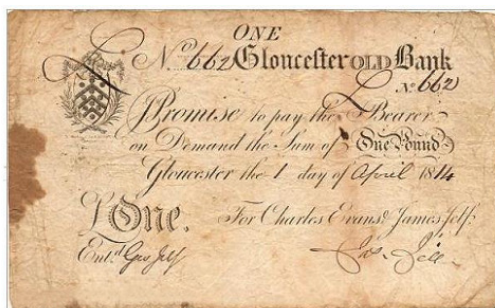 ONE
No 662 Gloucester OLD Bank
No 662
I Promise to pay the Bearer
on Demand the Sum of One Pound
Gloucester the 1 day of April 1814
£ One. For Charles Evans & James Jelf.
Entd Geo Jelf Jas Jelf